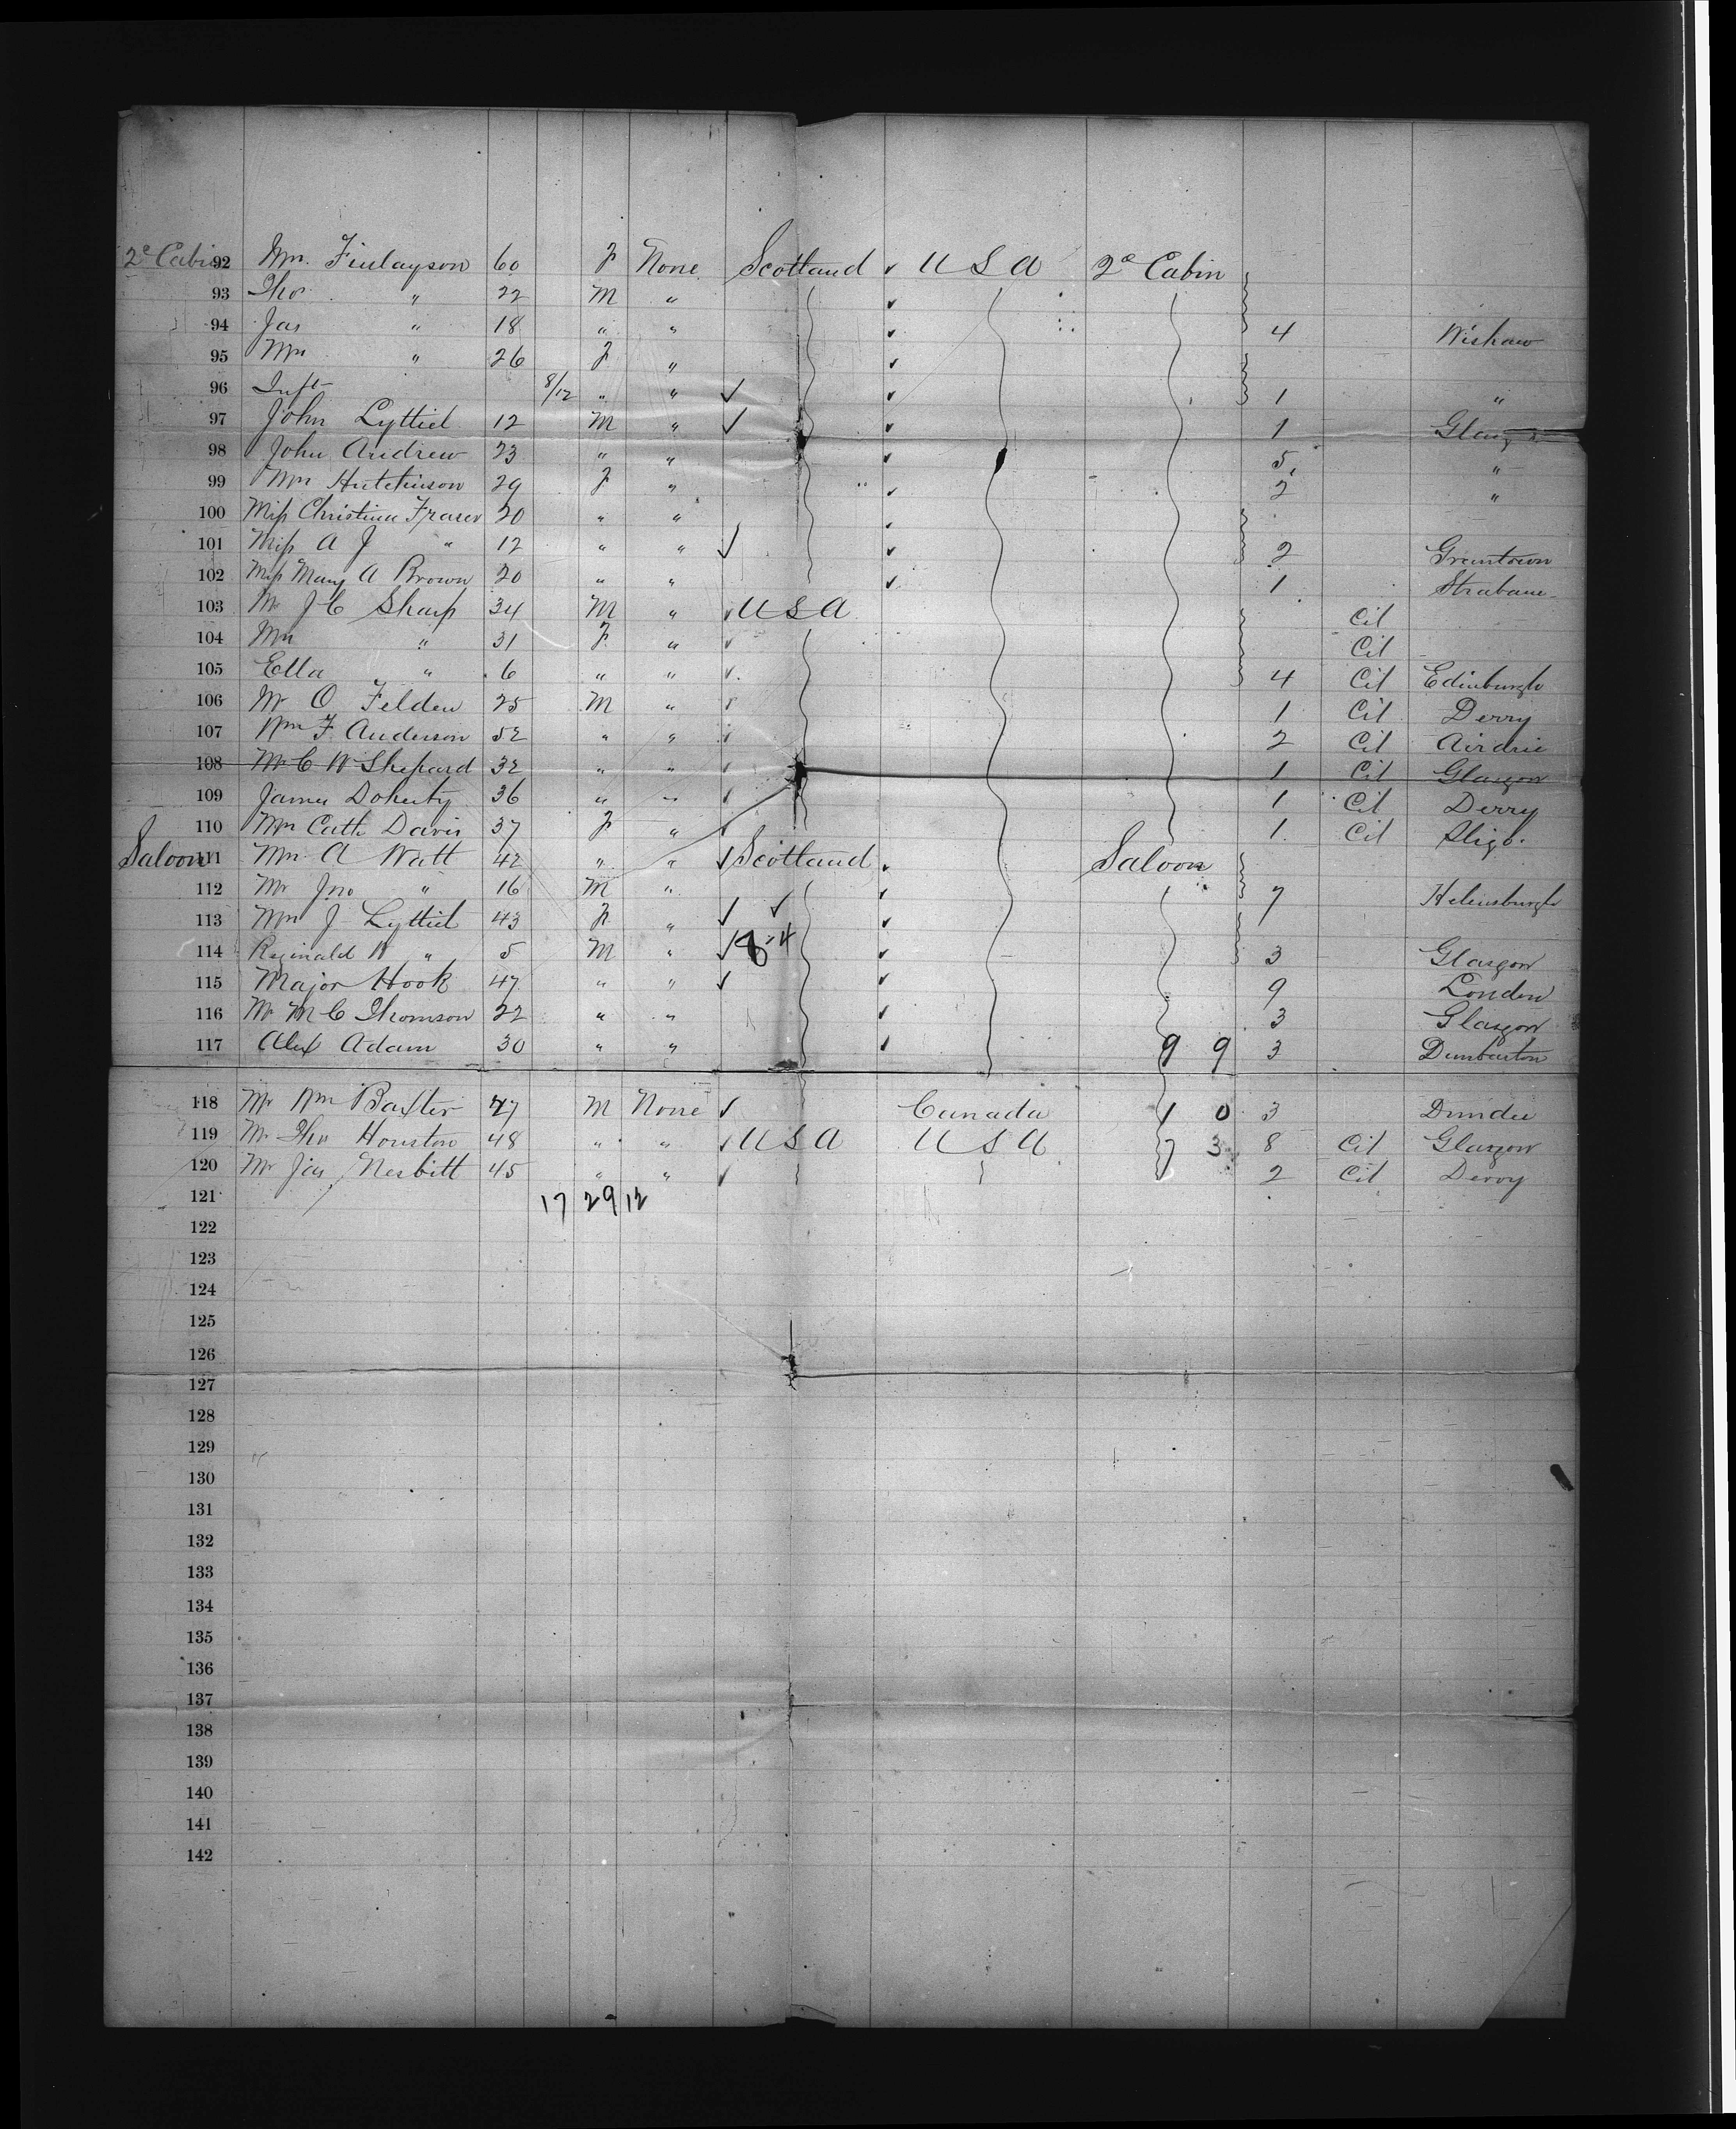 2ᵉ Cabin 92 Mrs. Finlayson 60 F None Scotland ✓ U S A 2ᵉ Cabin
93 Thos " 22 M " ✓
94 Jas " 18 " " ✓ 4 Wishaw
95 Mrs " 26 F " ✓
96 Inft 8/12 " " ✓ ✓ 1 "
97 John Lyttiel 12 M " ✓ ✓ 1
98 John Andrew 23 " " ✓ 5 "
99 Mrs Hutchinson 29 F " ✓ 2 "
100 Miss Christina Fraser 20 " " ✓
101 Miss A J " 12 " " ✓ ✓ 2
102 Miss Mary A Brown 20 " " ✓ 1 Strabane
103 Mr J C Sharp 34 M " ✓ U S A Cit
104 Mrs " 31 F " ✓ Cit
105 Ella " 6 " " ✓ 4 Cit Edinburgh
106 Mr O Felden 25 M " ✓ 1 Cit Derry
107 Wm F. Anderson 52 " " ✓ 2 Cit Airdrie
108 Mr C W Shepard 32 " " ✓ 1 Cit Glasgow
109 James Doherty 36 " " ✓ 1 Cit Derry
110 Mrs Cath Davis 37 F " ✓ 1 Cit Sligo.
Saloon 111 Mrs. A Watt 42 " " ✓ Scotland ✓ Saloon
112 Mr Jno " 16 M " ✓ 7 Helensburgh
113 Mrs J Lyttiel 43 F " ✓ ✓ ✓
114 Reginald W " 5 M " ✓ 8-4 ✓ 3 Glasgow
115 Major Hook 47 " " ✓ ✓ 9 London
116 Mr M C Thomson 22 " " ✓ 3 Glasgow
117 Alex Adam 30 " " ✓ 9 9 3 Dumbarton
118 Mr Wm Baxter 47 M None ✓ Canada 1 0 3 Dundee
119 Mr Thos Houston 48 " " ✓ U S A U S A 7 3 8 Cit Glasgow
120 Mr Jas Nesbitt 45 " " ✓ 2 Cit Derry
121 17 29 12
122
123
124
125
126
127
128
129
130
131
132
133
134
135
136
137
138
139
140
141
142